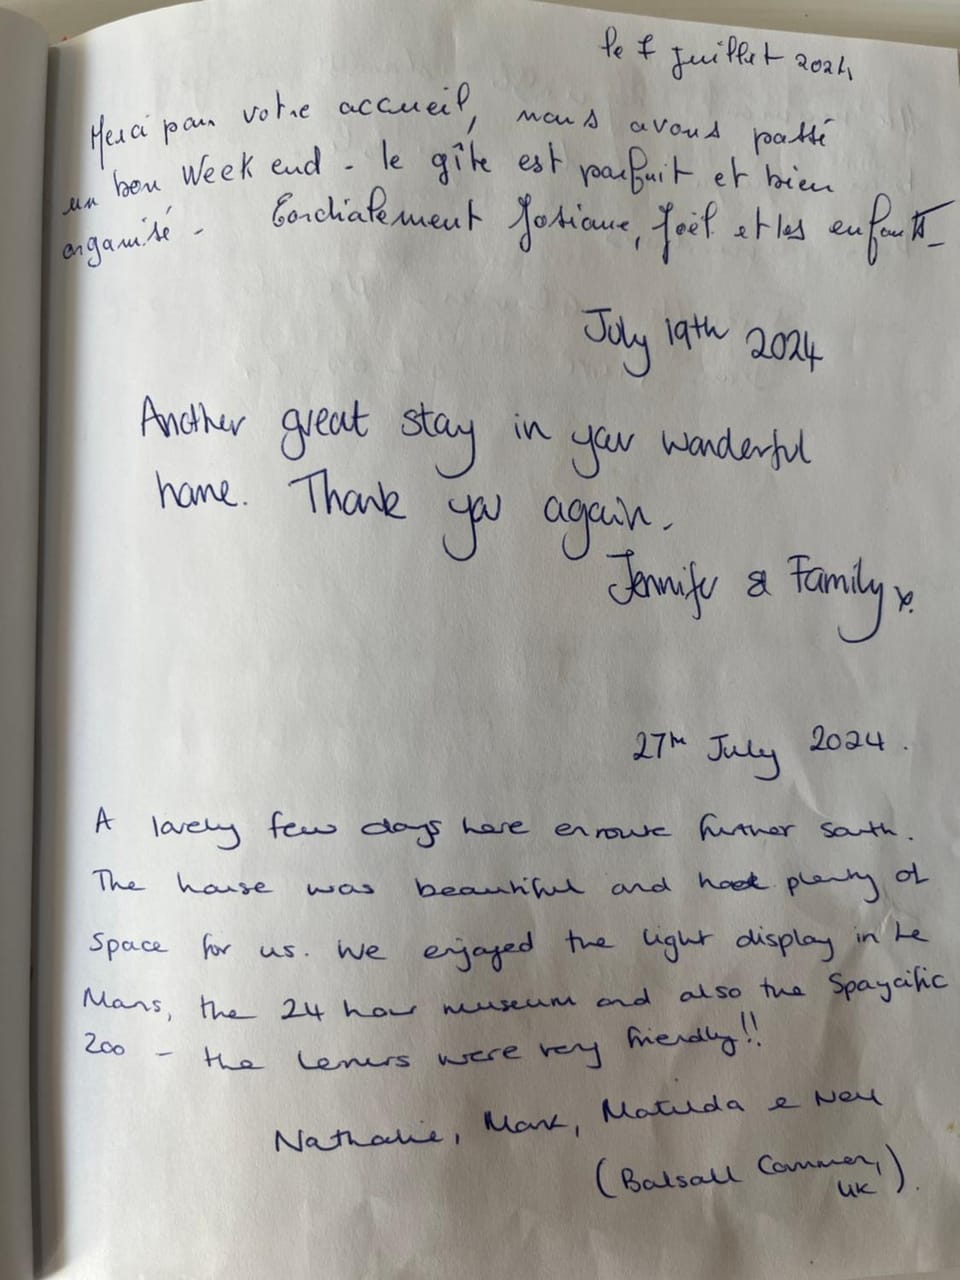 le 7 juillet 2024
Merci pour votre accueil, nous avons passé
un bon week end - le gîte est parfait et bien
organisé - Cordialement Josiane, Joël et les enfants -
July 19th 2024
Another great stay in your wonderful
home. Thank you again.
Jennifer & Family x.
27th July 2024.
A lovely few days here enroute further south.
The house was beautiful and had plenty of
space for us. We enjoyed the light display in Le
Mans, the 24 hour museum and also the Spaycific
Zoo - the lemurs were very friendly!!
Nathalie, Mark, Matilda & Neil
(Balsall Common,
UK).